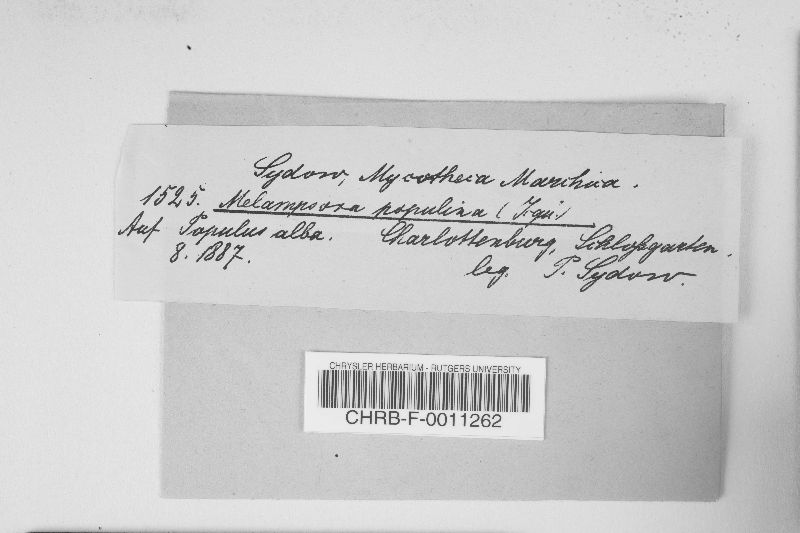 Sydow, Mycotheca Marchica.
1525. Melampsora populina (Jqu.)
Auf Populus alba. Charlottenburg, Schloßgarten.
8. 1887. leg. P. Sydow.
CHRYSLER HERBARIUM - RUTGERS UNIVERSITY
CHRB-F-0011262